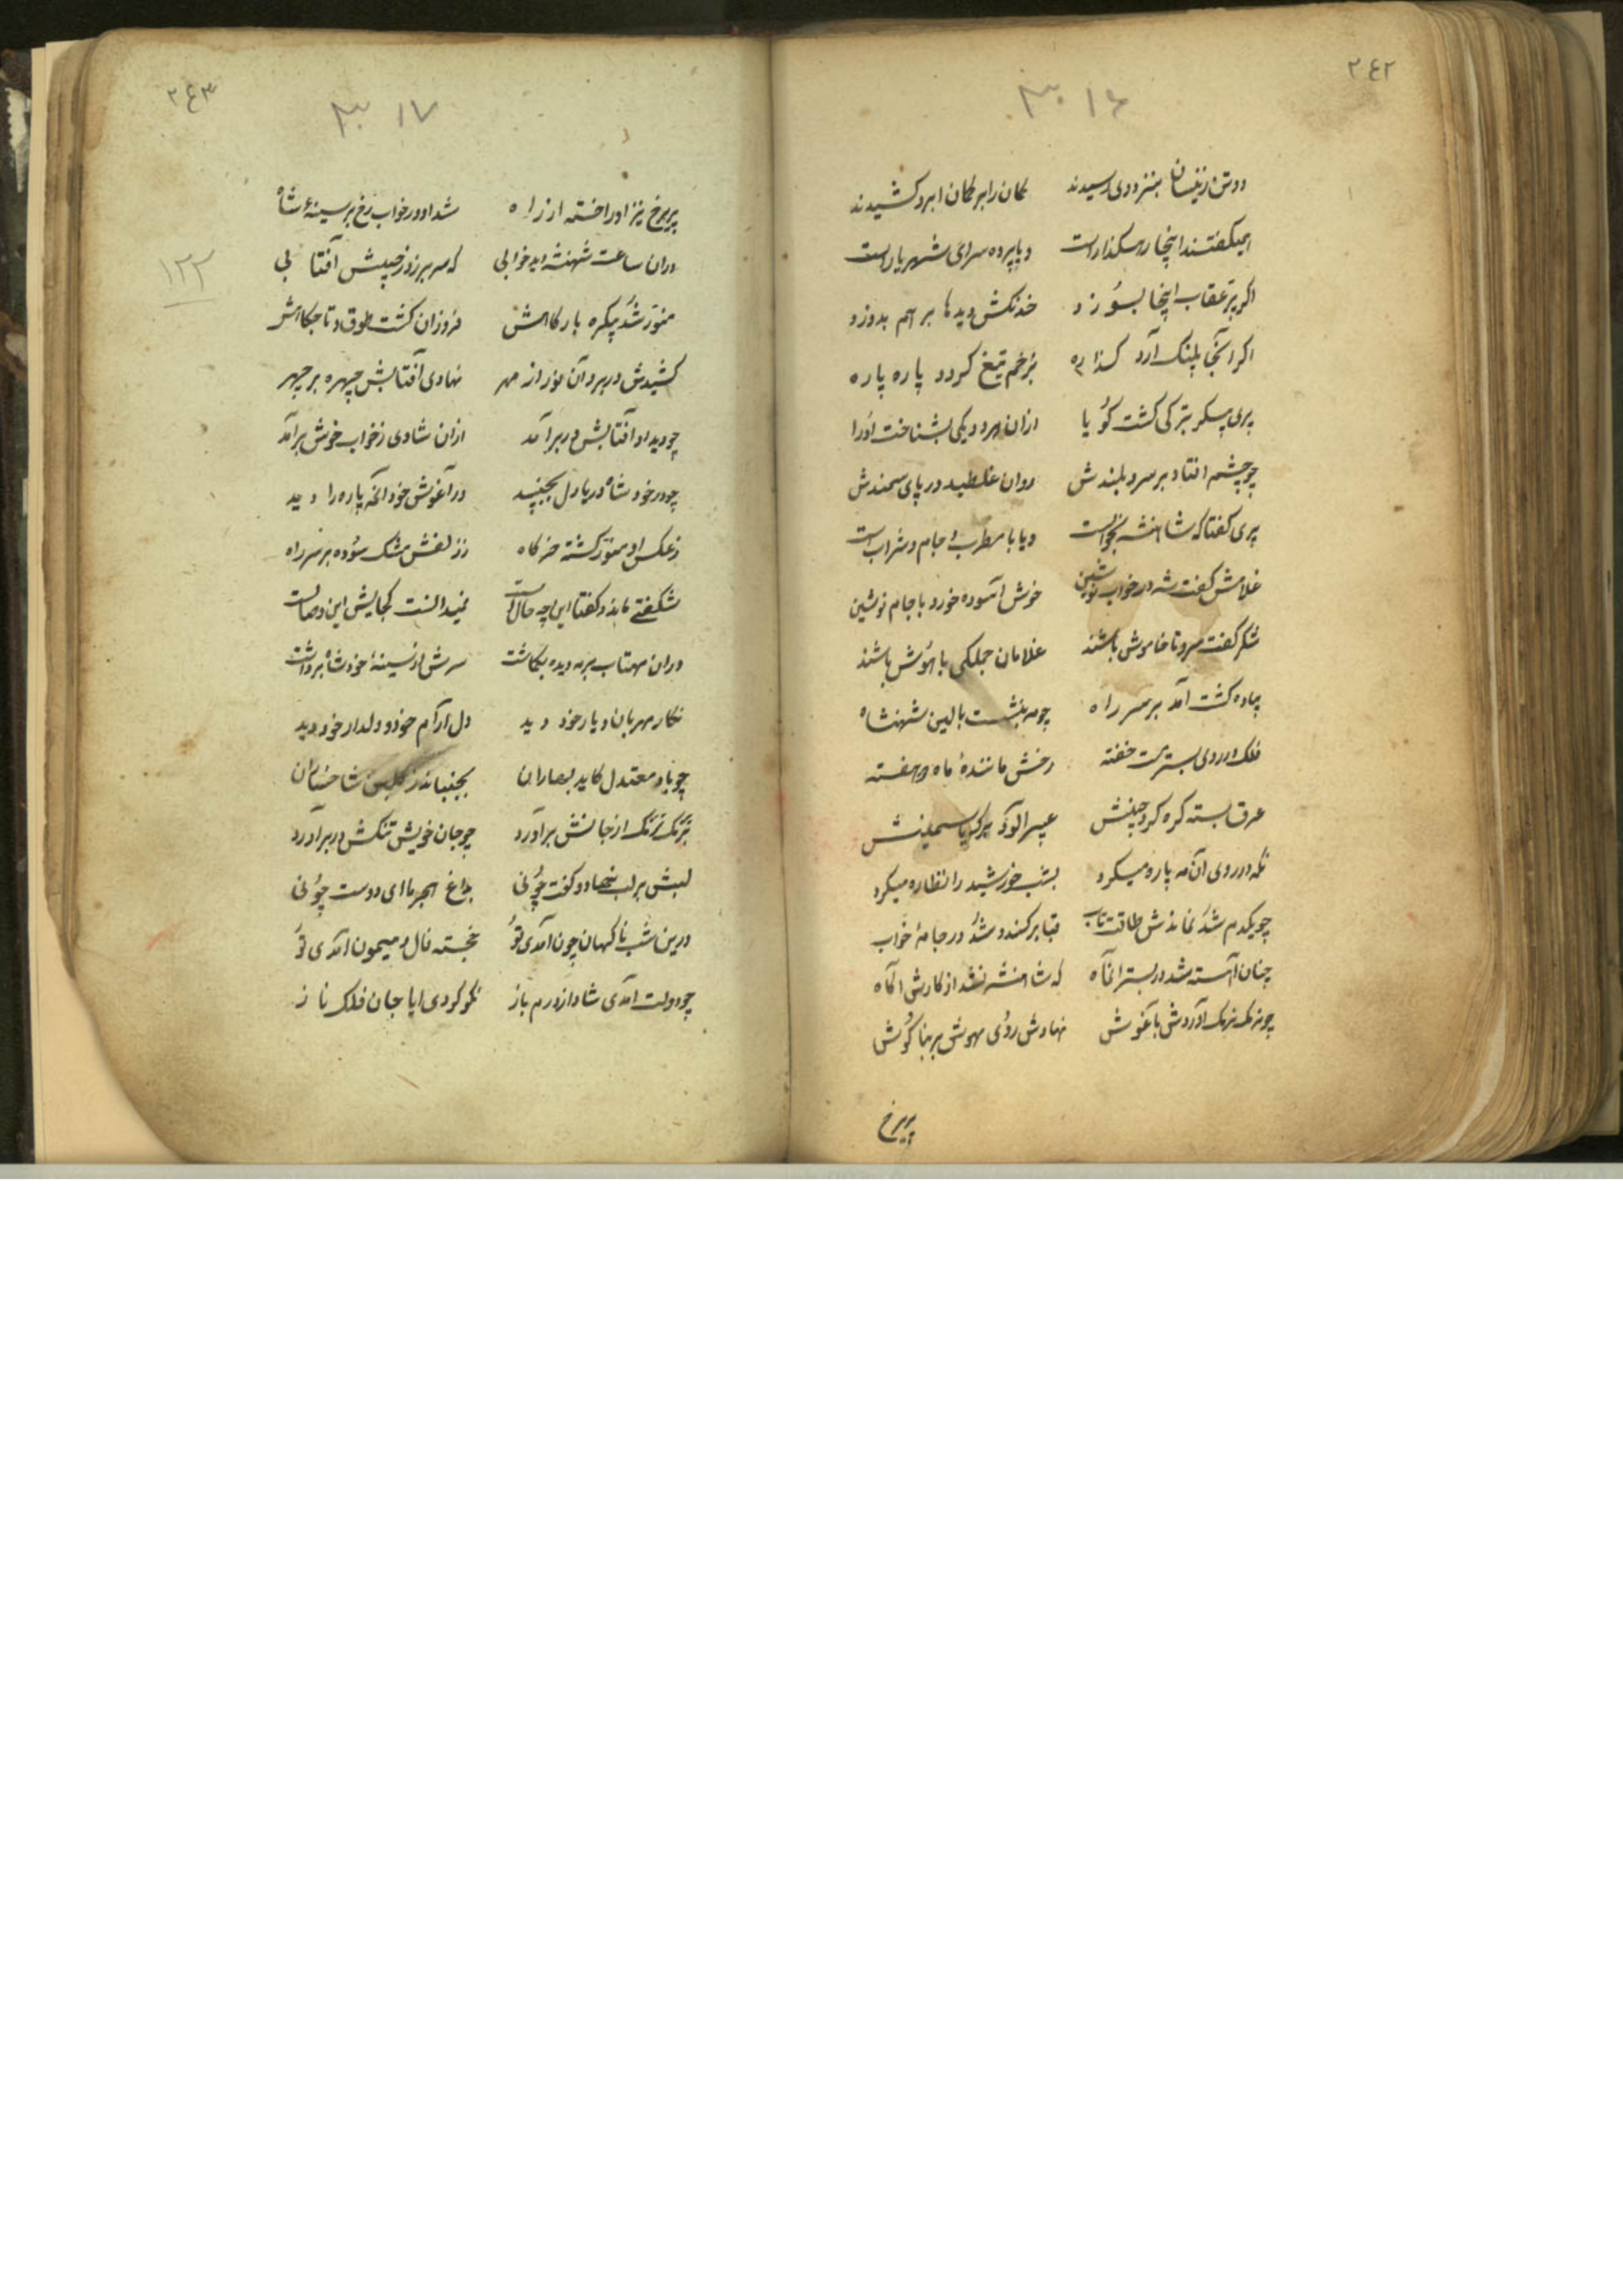 ۲۴۲
۳۰۱۶
دو تن زیشان بنزد وی رسیدند کمان را بر کمان ابرو کشیدند
همیگفتند اینجا رهگذارست و یا پرده سرای شهریارست
اگر پر عقاب اینجا بسوزد خدنگش دیدها بر هم بدوزد
اگر اینجا پلنگ آرد گذاره بزخم تیغ گردد پاره پاره
پری پیکر بترکی گشت گویا ازان هر دو یکی بشناخت او را
چو چشم افتاد بر سرو بلندش روان غلطید در پای سمندش
پری گفتا که شاهنشه بخوابست و یا با مطرب و جام و شرابست
غلامش گفت شه در خواب نوشین خوش آسوده خورد با جام نوشین
شکر گفت مرو تا خاموش باشند غلامان جملگی با هوش باشند
پیاده گشت آمد بر سر راه چو مه بنشست بالین شهنشاه
فلک در روی بسترست خفته رخش مانندهٔ ماه دو هفته
عرق بسته گره گرد جبینش عبیر آلود برگ یاسمینش
نگه در روی آن مه پاره میکرد بشب خورشید را نظاره میکرد
چو یکدم شد نماندش طاقت تاب قبا بر کند و شد در جامهٔ خواب
چنان آهسته شد در بستر آنماه که شاهنشه نشد از کارش آگاه
چو نرمک نرمک آوردش بآغوش نهادش روی مهوش بر بناگوش
پریرخ
۲۴۳
۳۰۱۷
۱۲۲
پریرخ نیز او را خسته از راه شد او در خواب رخ بر سینهٔ شاه
دران ساعت شهنشه دید خوابی که سر بر زد ز جیبش آفتابی
منور شد یکره بارگاهش فروزان گشت طوق و تاج گاهش
کشیدش در بر و آن نور از مهر نهادی آفتابش چهره بر چهر
چو دید او آفتابش در بر آمد ازان شادی ز خواب خوش بر آمد
چو در خود شاه دریا دل بجنبید در آغوش خود آنمه پاره را دید
ز عکس او منور گشته خرگاه ز زلفش مشک سوده بر سر راه
شگفتی ماند و گفتا این چه حالست نمیدانست کجایش این وصالست
دران مهتاب بر مه دیده بگماشت سرش از سینهٔ خود شاه برداشت
نگار مهربان و یار خود دید دل آرام خود و دلدار خود دید
چو باد معتدل کاید بهاران بجنباند ز گلبن شاخساران
بترنگ ترنگ از جانش بر آورد چو جان خویش تنگش در بر آورد
لبش بر لب نهاد و گفت چونی بداغ هجر ما ای دوست چونی
درین شب ناگهان چون آمدی تو خجسته فال و میمون آمدی تو
چو دولت آمدی شاد از درم باز نکو کردی ایا جان فلک ناز